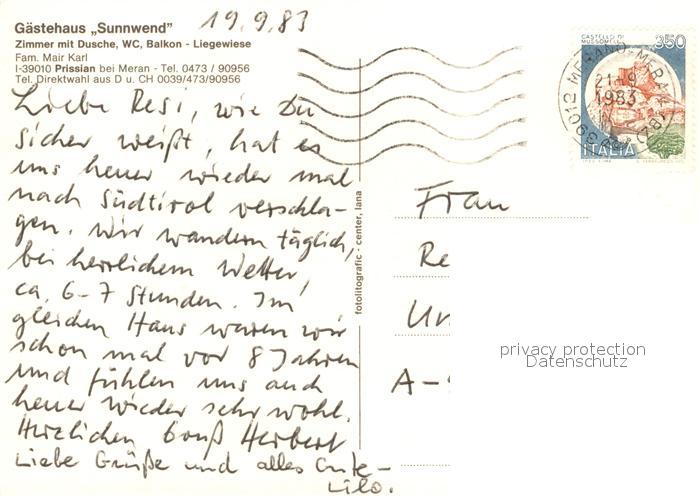 19.9.83
Gästehaus „Sunnwend"
Zimmer mit Dusche, WC, Balkon - Liegewiese
Fam. Mair Karl
I-39010 Prissian bei Meran - Tel. 0473 / 90956
Tel. Direktwahl aus D u. CH 0039/473/90956
Liebe Resi, wie Du
sicher weißt, hat es
uns heuer wieder mal
nach Südtirol verschla-
gen. Wir wandern täglich,
bei herrlichem Wetter,
ca. 6-7 Stunden. Im
gleichen Haus waren wir
schon mal vor 8 Jahren
und fühlen uns auch
heuer wieder sehr wohl.
Herzlichen Gruß Herbert
Liebe Grüße und alles Gute -
Lilo.
fotolitografic - center, lana
CASTELLO DI
MUSSOMELI
350
MERANO-MERAN
21-9
1983
39012
ITALIA
Frau
Re
Un
A-
privacy protection
Datenschutz